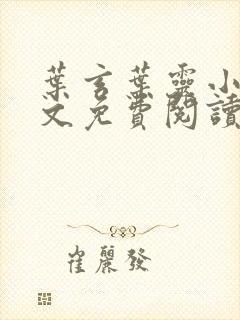 葉言葉靈小
文免費閱讀
崔麗發